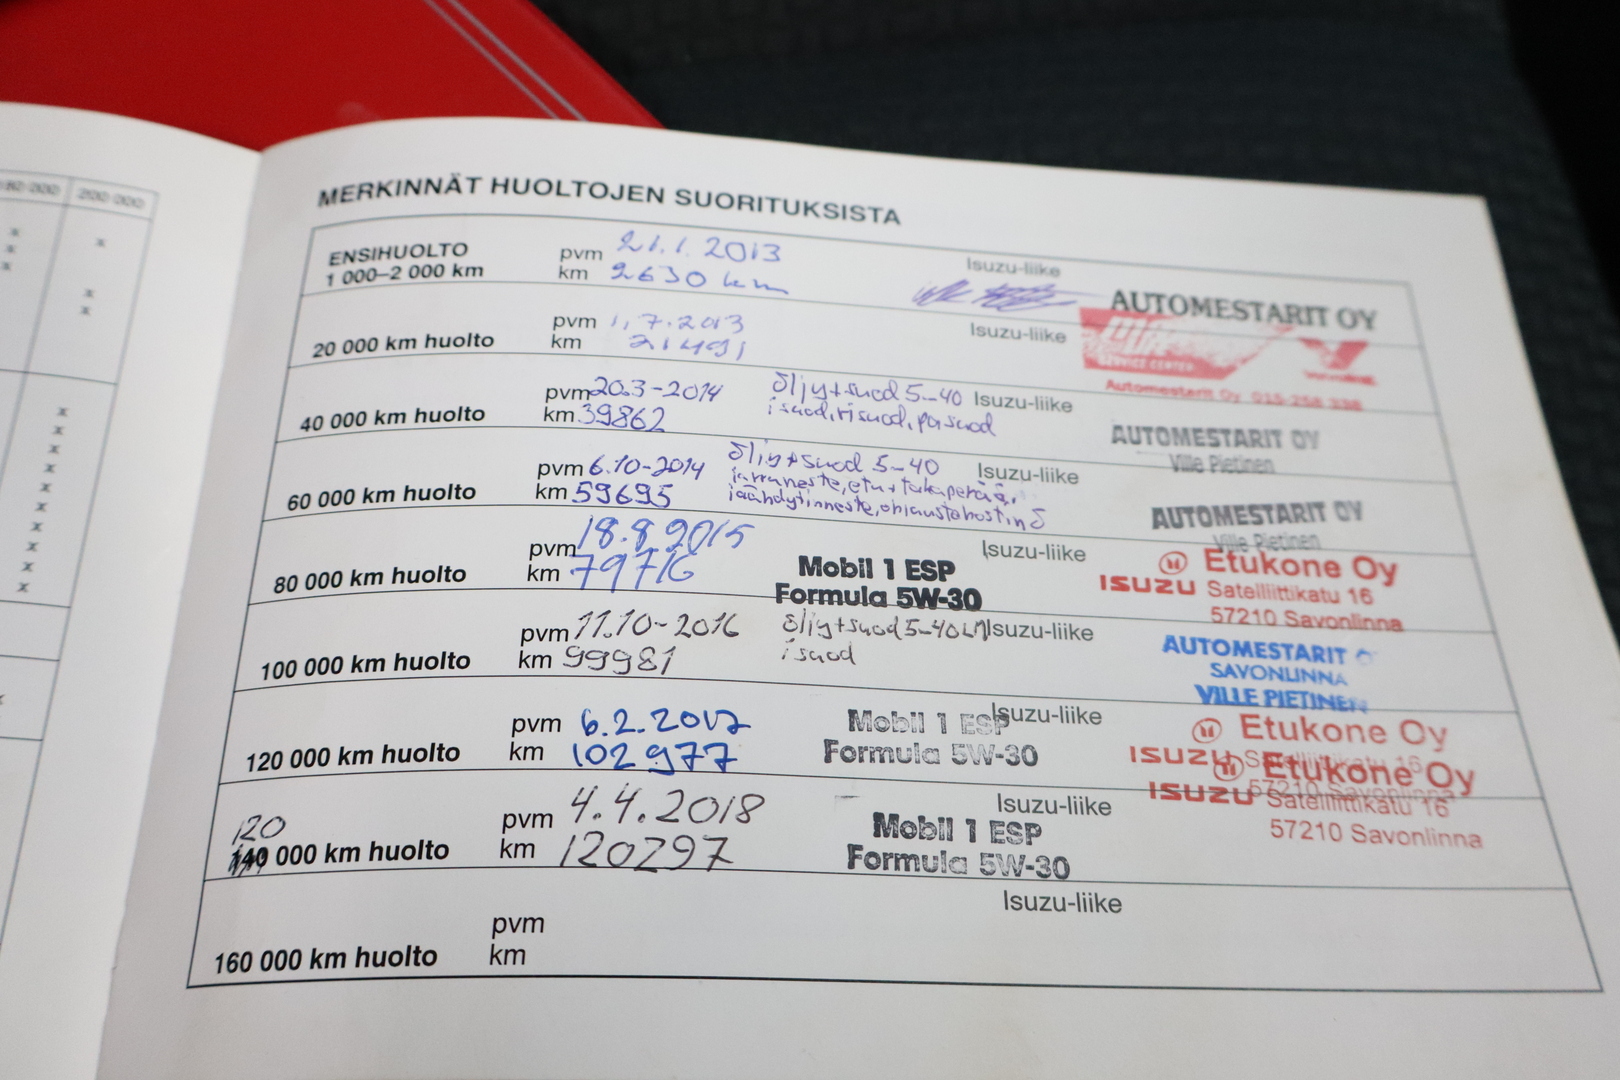 80 000 200 000
MERKINNÄT HUOLTOJEN SUORITUKSISTA
ENSIHUOLTO
1 000–2 000 km
pvm 21.1.2013
km 2630 km
Isuzu-liike
AUTOMESTARIT OY
20 000 km huolto
pvm 1.7.2013
km 21491
Isuzu-liike
SERVICE CENTER
Automestarit Oy 015-258 338
40 000 km huolto
pvm 20.3-2014
km 39862
öljy+suod 5-40
isuod, risuod, pasuod
Isuzu-liike
AUTOMESTARIT OY
Ville Pietinen
60 000 km huolto
pvm 6.10-2014
km 59695
öljy+suod 5-40
jarruneste, etu+takaperää,
jäähdytinneste, ohjaustehostinö
Isuzu-liike
AUTOMESTARIT OY
Ville Pietinen
80 000 km huolto
pvm 18.8.2015
km 79716
Mobil 1 ESP
Formula 5W-30
Isuzu-liike
Etukone Oy
ISUZU Satelliittikatu 16
57210 Savonlinna
100 000 km huolto
pvm 11.10-2016
km 99981
öljy+suod 5-40
isuod
Isuzu-liike
AUTOMESTARIT O
SAVONLINNA
VILLE PIETINEN
120 000 km huolto
pvm 6.2.2017
km 102977
Mobil 1 ESP
Formula 5W-30
Isuzu-liike
Etukone Oy
ISUZU Satelliittikatu 16
57210 Savonlinna
120
140 000 km huolto
pvm 4.4.2018
km 120297
Mobil 1 ESP
Formula 5W-30
Isuzu-liike
Etukone Oy
ISUZU Satelliittikatu 16
57210 Savonlinna
160 000 km huolto
pvm
km
Isuzu-liike